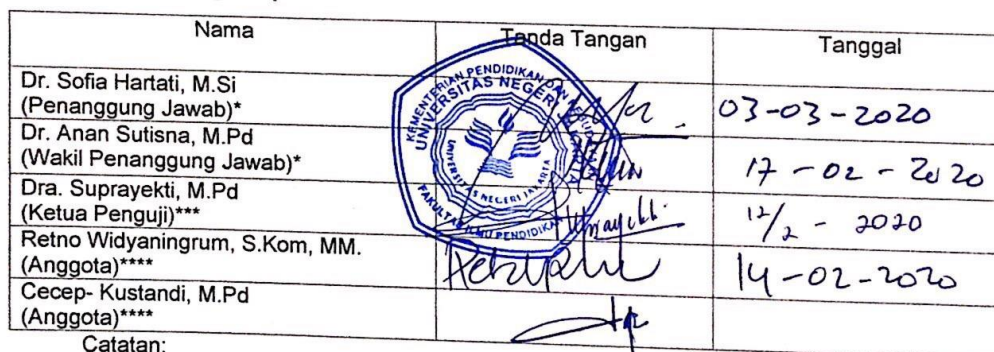 Nama Tanda Tangan Tanggal
Dr. Sofia Hartati, M.Si
(Penanggung Jawab)* 03-03-2020
Dr. Anan Sutisna, M.Pd
(Wakil Penanggung Jawab)* 17-02-2020
Dra. Suprayekti, M.Pd
(Ketua Penguji)*** 12/2 - 2020
Retno Widyaningrum, S.Kom, MM.
(Anggota)**** 14-02-2020
Cecep- Kustandi, M.Pd
(Anggota)****
Catatan:
KEMENTERIAN PENDIDIKAN DAN
UNIVERSITAS NEGERI
UNIVERSITAS NEGERI JAKARTA
FAKULTAS ILMU PENDIDIKAN